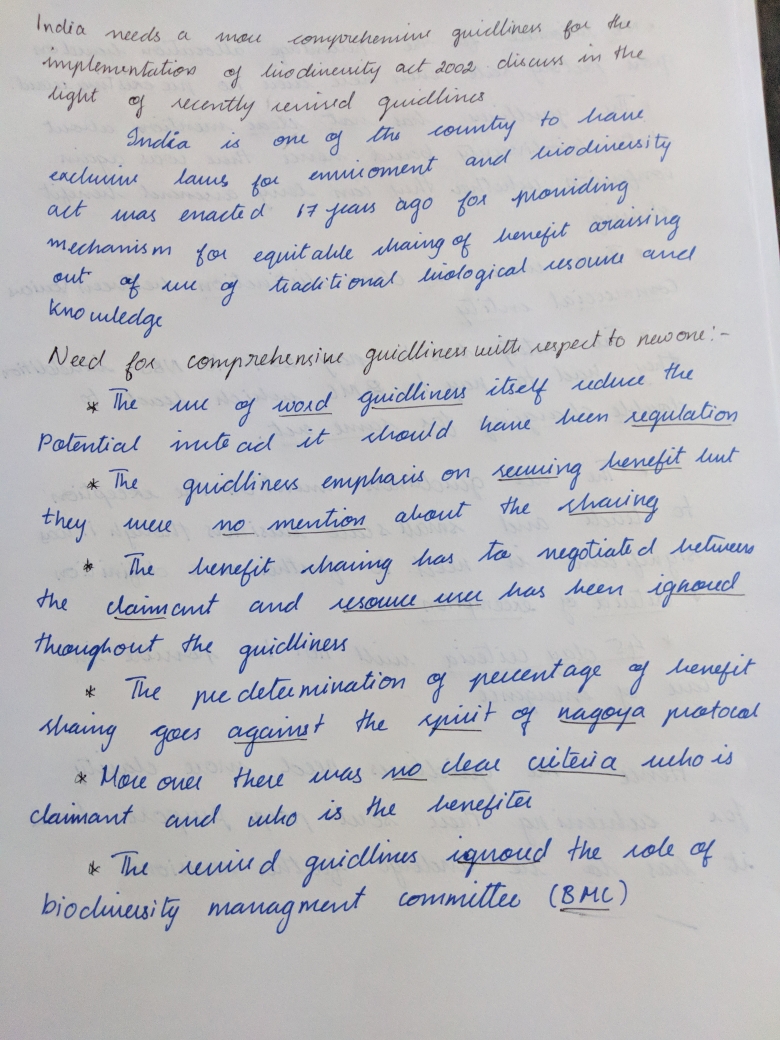 India needs a more comprehensive guidliness for the
implementation of biodiversity act 2002 discuss in the
light of recently revised guidlines
India is one of the country to have
exclusive laws for enviroment and biodiversity
act was enacted 17 years ago for providing
mechanism for equitable sharing of benefit araising
out of use of traditional biological resource and
knowledge
Need for comprehensive guidliness with respect to new one:-
* The use of word guidliness itself reduce the
Potential instead it should have been regulation
* The guidliness emphasis on securing benefit but
they were no mention about the sharing
* The benefit sharing has to negotiated between
the claimant and resource user has been ignored
throughout the guidliness
* The predetermination of percentage of benefit
sharing goes against the spirit of nagoya protocol
* More over there was no clear criteria who is
claimant and who is the benefiter
* The revised guidlines ignored the role of
biodiversity managment committee (BMC)